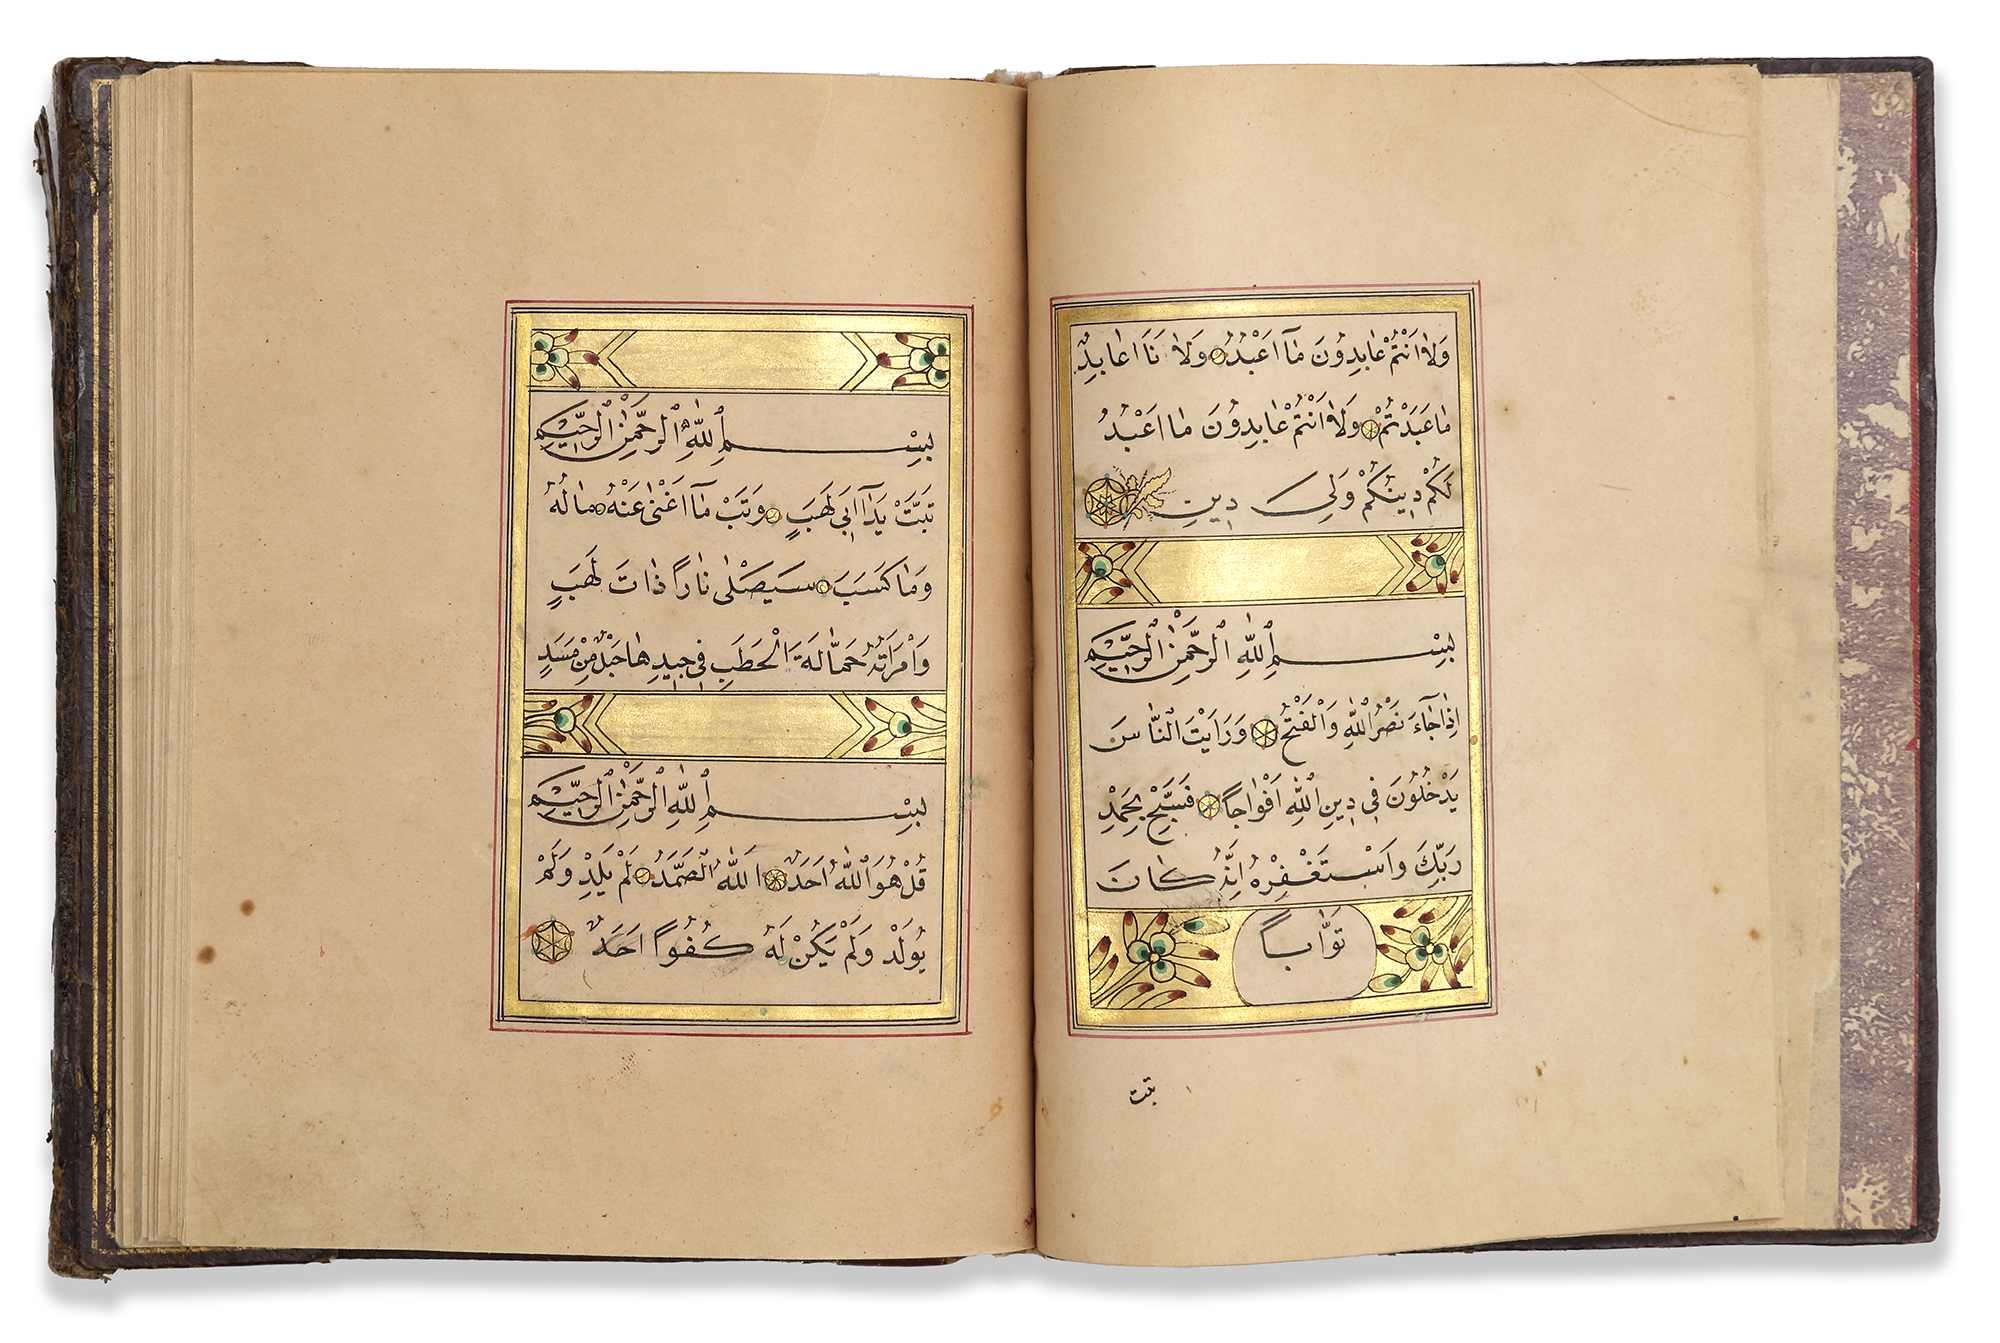 وَلَا اَنْتُمْ عَابِدُونَ مَٓا اَعْبُدُ وَلَا نَا۬ اَعَابِدٌ
مَا عَبَدْتُمْ وَلَا اَنْتُمْ عَابِدُونَ مَا اَعْبُدُ
لَكُمْ دِينُكُمْ وَلِيَ دِينِ
بِسْمِ اللّٰهِ الرَّحْمٰنِ الرَّحِيمِ
اِذَا جَٓاءَ نَصْرُ اللّٰهِ وَالْفَتْحُ وَرَاَيْتَ النَّاسَ
يَدْخُلُونَ فِي دِينِ اللّٰهِ اَفْوَاجًا فَسَبِّحْ بِحَمْدِ
رَبِّكَ وَاسْتَغْفِرْهُ اِنَّهُ كَانَ
تَوَّابًا
تبت
بِسْمِ اللّٰهِ الرَّحْمٰنِ الرَّحِيمِ
تَبَّتْ يَدَٓا اَبِي لَهَبٍ وَتَبَّ مَٓا اَغْنٰى عَنْهُ مَالُهُ
وَمَا كَسَبَ سَيَصْلٰى نَارًا ذَاتَ لَهَبٍ
وَامْرَاَتُهُ حَمَّالَةَ الْحَطَبِ فِي جِيدِهَا حَبْلٌ مِنْ مَسَدٍ
بِسْمِ اللّٰهِ الرَّحْمٰنِ الرَّحِيمِ
قُلْ هُوَ اللّٰهُ اَحَدٌ اَللّٰهُ الصَّمَدُ لَمْ يَلِدْ وَلَمْ
يُولَدْ وَلَمْ يَكُنْ لَهُ كُفُوًا اَحَدٌ